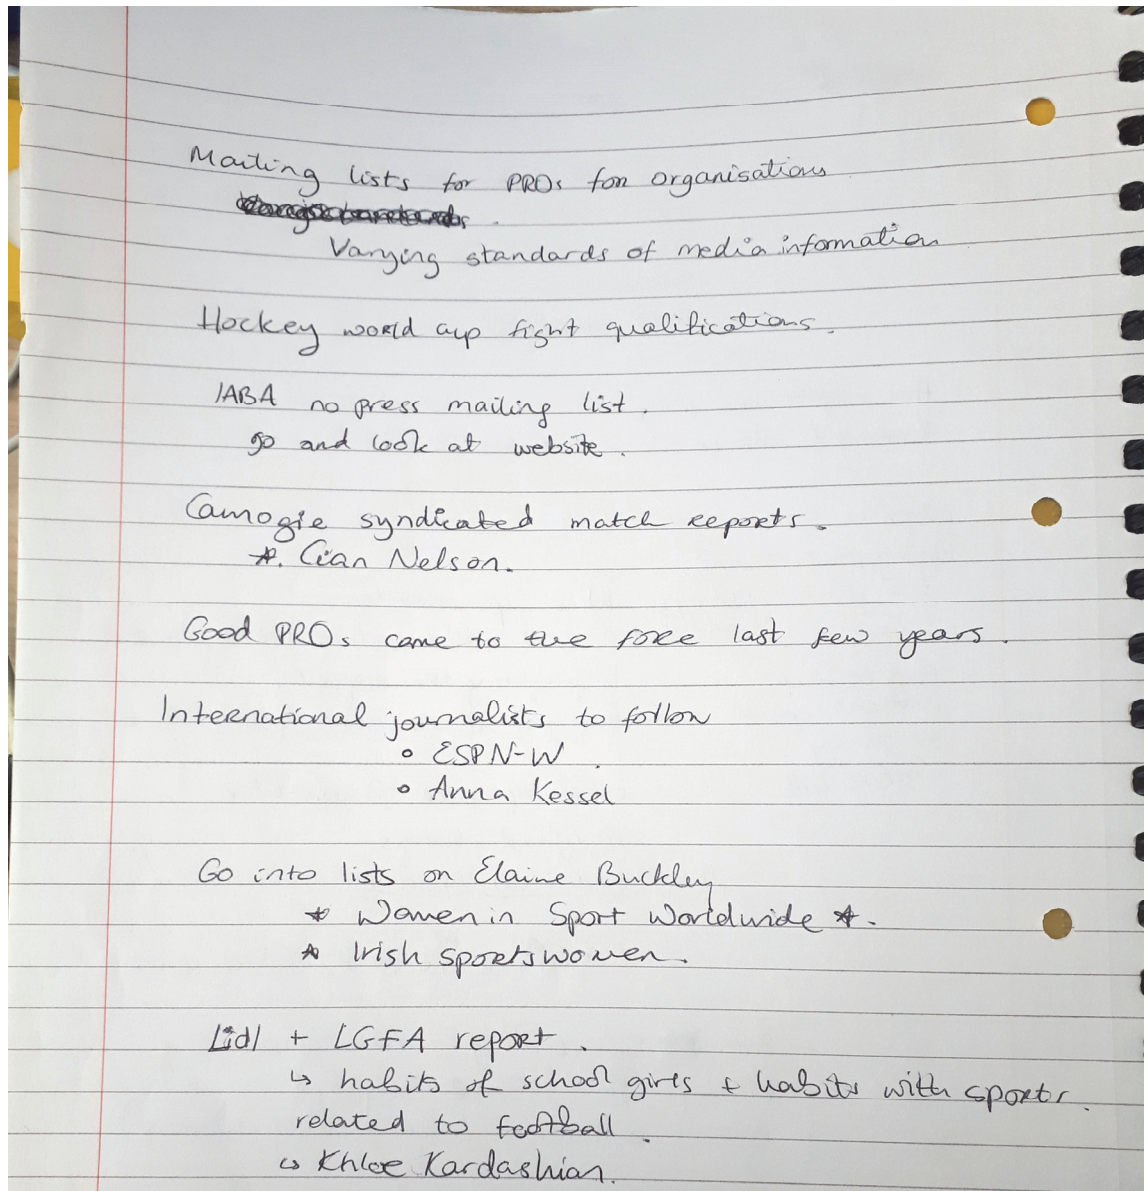 Mailing lists for PROs fom organisations
Varying standards of media information
Hockey world cup fight qualifications.
IABA no press mailing list.
go and look at website.
Camogie syndicated match reports.
*. Cian Nelson.
Good PROs came to the fore last few years.
International journalists to follow
• ESPN-W.
• Anna Kessel
Go into lists on Elaine Buckley
* Women in Sport Worldwide *.
* Irish sportswomen.
Lidl + LGFA report.
↳ habits of school girls + habits with sports.
related to football.
↳ Khloe Kardashian.